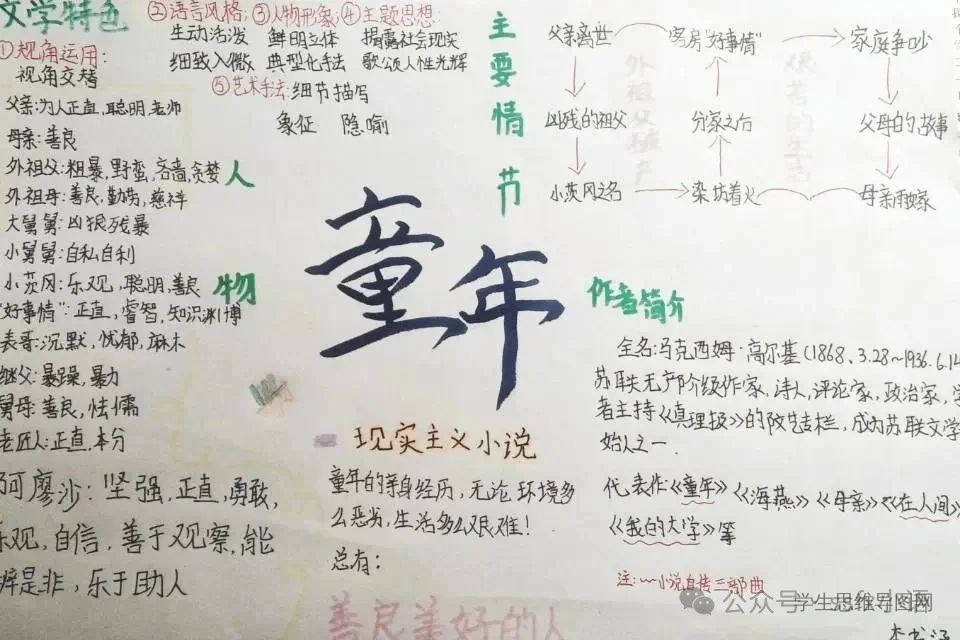 文学特色
①视角运用:
视角交替
②语言风格;
生动活泼
细致入微
③人物形象;
鲜明立体
典型化手法
④主题思想:
揭露社会现实
歌颂人性光辉
⑤艺术手法:细节描写
象征 隐喻
人物
父亲:为人正直,聪明,老师
母亲:善良
外祖父:粗暴,野蛮,吝啬,贪婪
外祖母:善良,勤劳,慈祥
大舅舅:凶狠残暴
小舅舅:自私自利
小茨冈:乐观,聪明,善良
"好事情":正直,睿智,知识渊博
表哥:沉默,忧郁,麻木
继父:暴躁,暴力
舅母:善良,怯儒
老匠人:正直,本分
阿廖沙:坚强,正直,勇敢,
乐观,自信,善于观察,能
辨是非,乐于助人
主要情节
父亲离世
凶残的祖父
小茨冈之名
染坊着火
分家之后
客房"好事情"
家庭争吵
父母的故事
母亲再嫁
童年
现实主义小说
童年的等身经历,无论环境多
么恶劣,生活多么艰难!
总有:
善良美好的人
作者简介
全名:马克西姆·高尔基(1868.3.28~1936.6.14
苏联无产阶级作家,诗人,评论家,政治家,学
者主持《真理报》的改艺栏,成为苏联文学
始人之一
代表作《童年》《海燕》《母亲》《在人间》
《我的大学》等
注:﹏小说自传三部曲
公众号
学生思维导图网